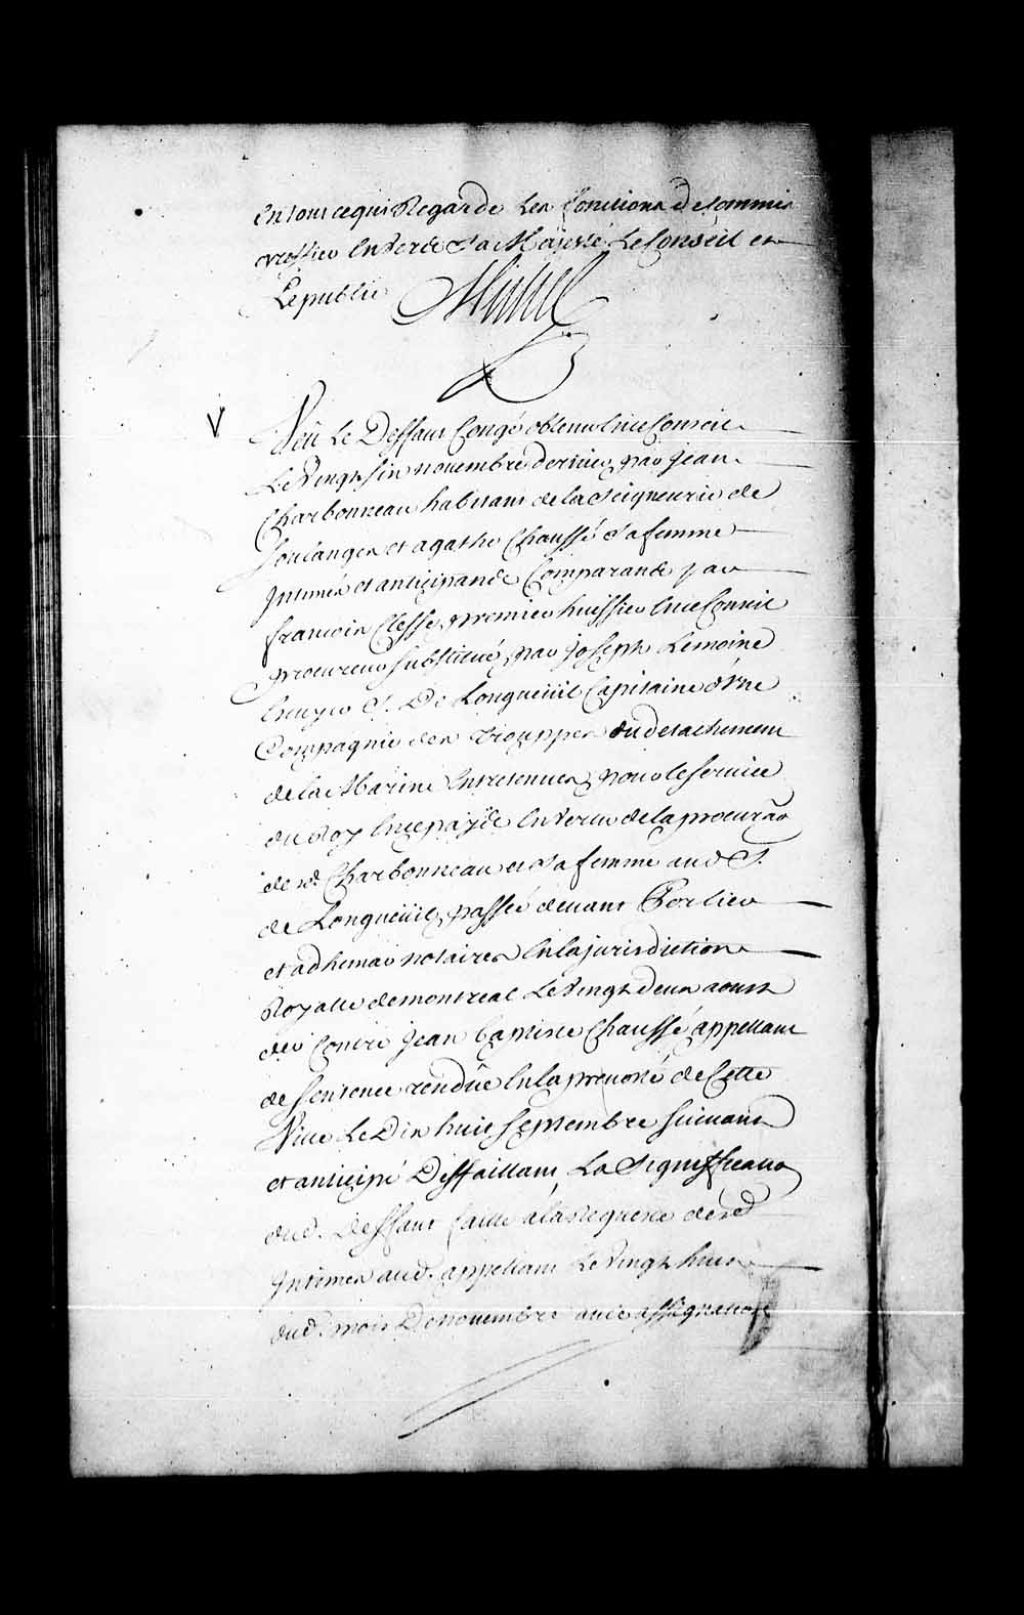 En tout ce qui Regarde Les fonctions de commis
greffier Envers Sa Majesté Le Conseil et
Le public Michel
V
Veü Le Deffaut Congé obtenu En ce Conseil
Le Vingt six novembre dernier par Jean
Charbonneau habitant de la Seigneurie de
Soulanges et agathe Chaussé Sa femme
Intimés et anticipands Comparands par
francois Clesse premier huissier En ce Conseil
procureur substitué par Joseph Lemoine
Ecuyer Sr. De Longueüil Capitaine d'Vne
Compagnie des Trouppes du detachement
de la Marine Entretenues pour le service
du Roy En ce païs En Vertu de la procurãõn
desd. Charbonneau et Sa femme aud Sr.
de Longueüil passée devant Porlier
et adhemar notaires En la jurisdiction
Royalle de montreal Le Vingt deux aoust
der Contre Jean baptiste Chaussé appellant
de sentence rendüe En la prevosté de Cette
Ville Le Dix huit septembre suivant
et anticipé Deffaillant, La Signiffication
dud. deffaut faitte a la Requeste desd
Intimés aud. appellant Le Vingt huit
dud. mois De novembre avec assignation